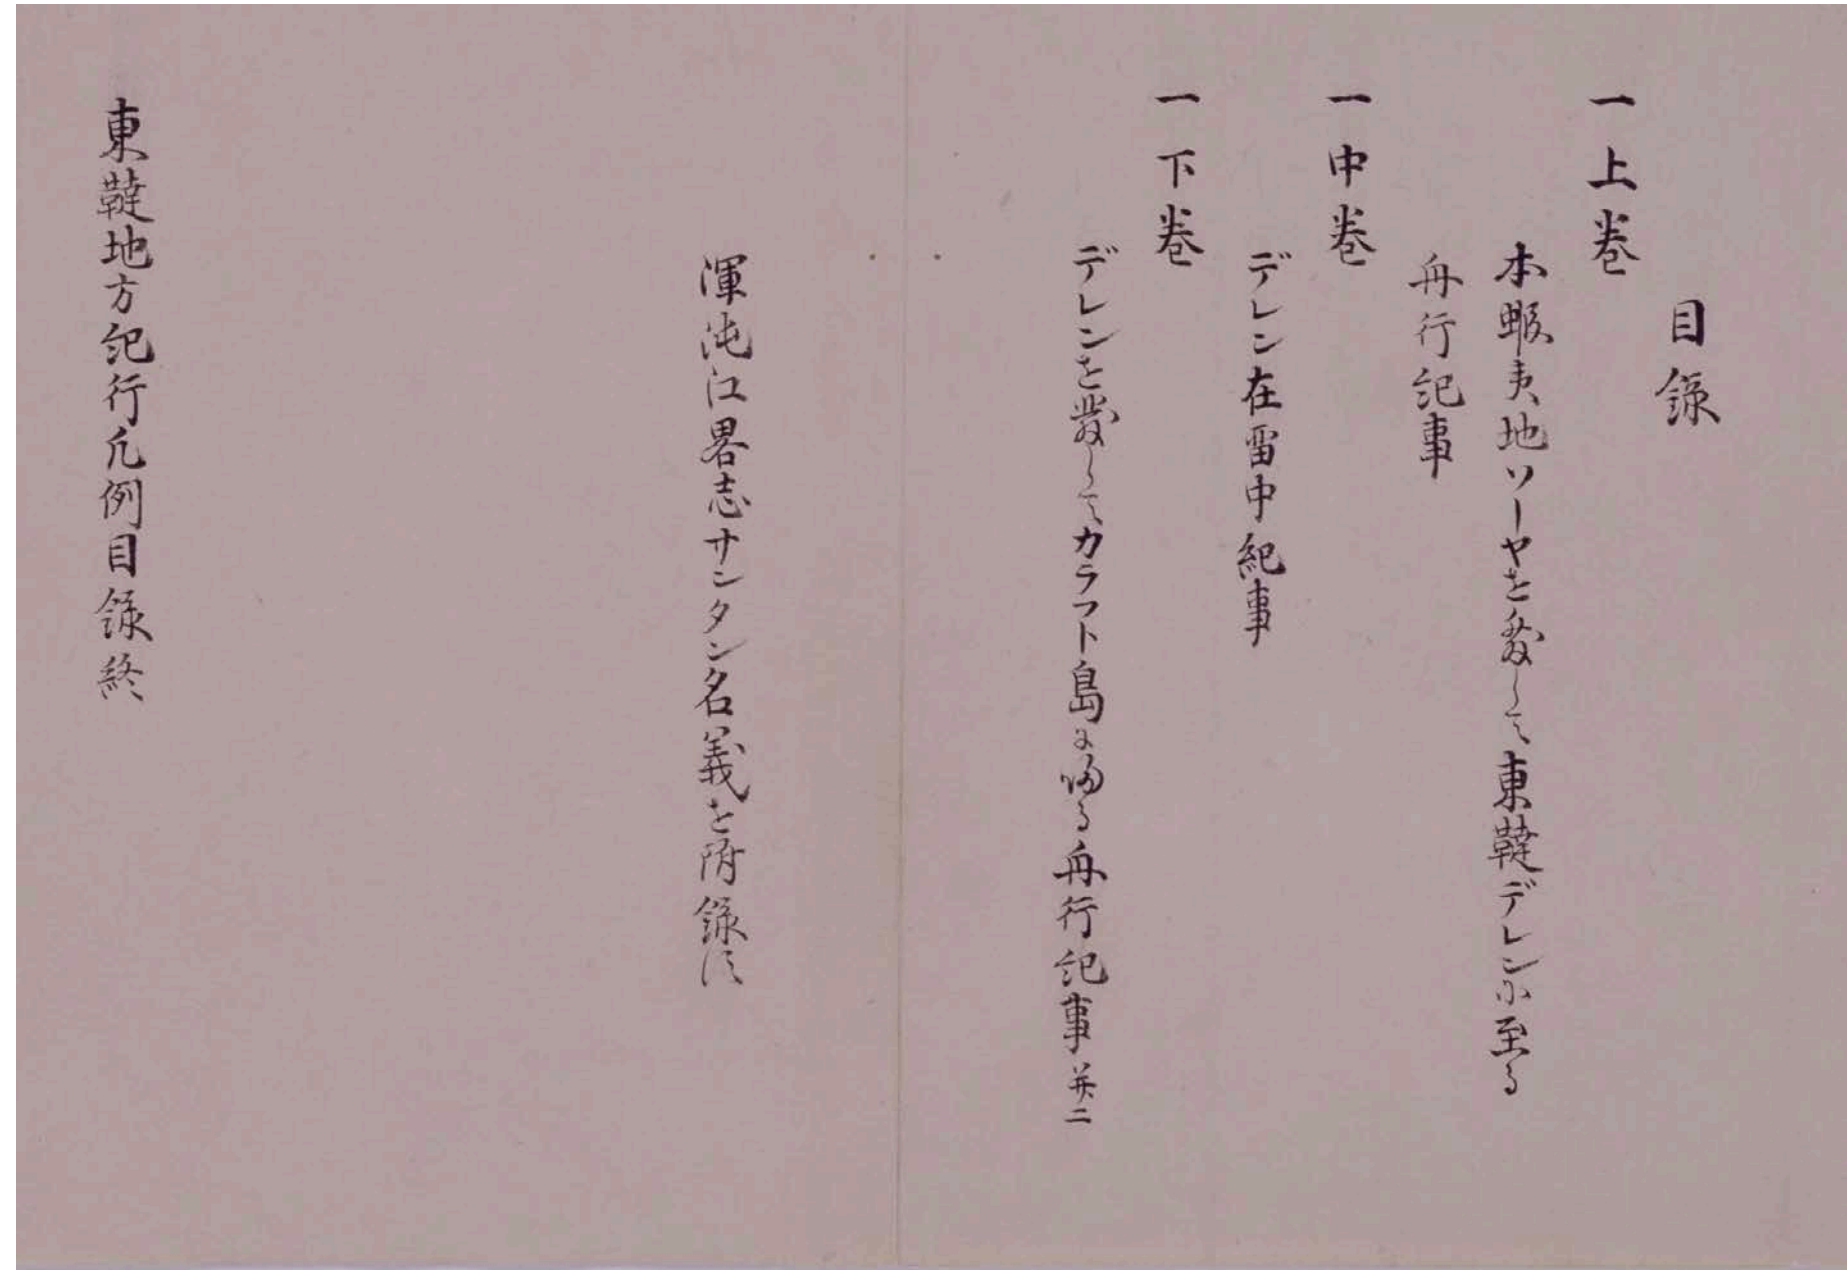 目録
一上巻
本蝦夷地ソーヤを発して東韃デレンに至る
舟行記事
一中巻
デレン在畱中紀事
一下巻
デレンを發してカラフト島に帰る舟行記事并ニ
渾沌江畧志サンタン名義を附録す
東韃地方紀行凡例目録終